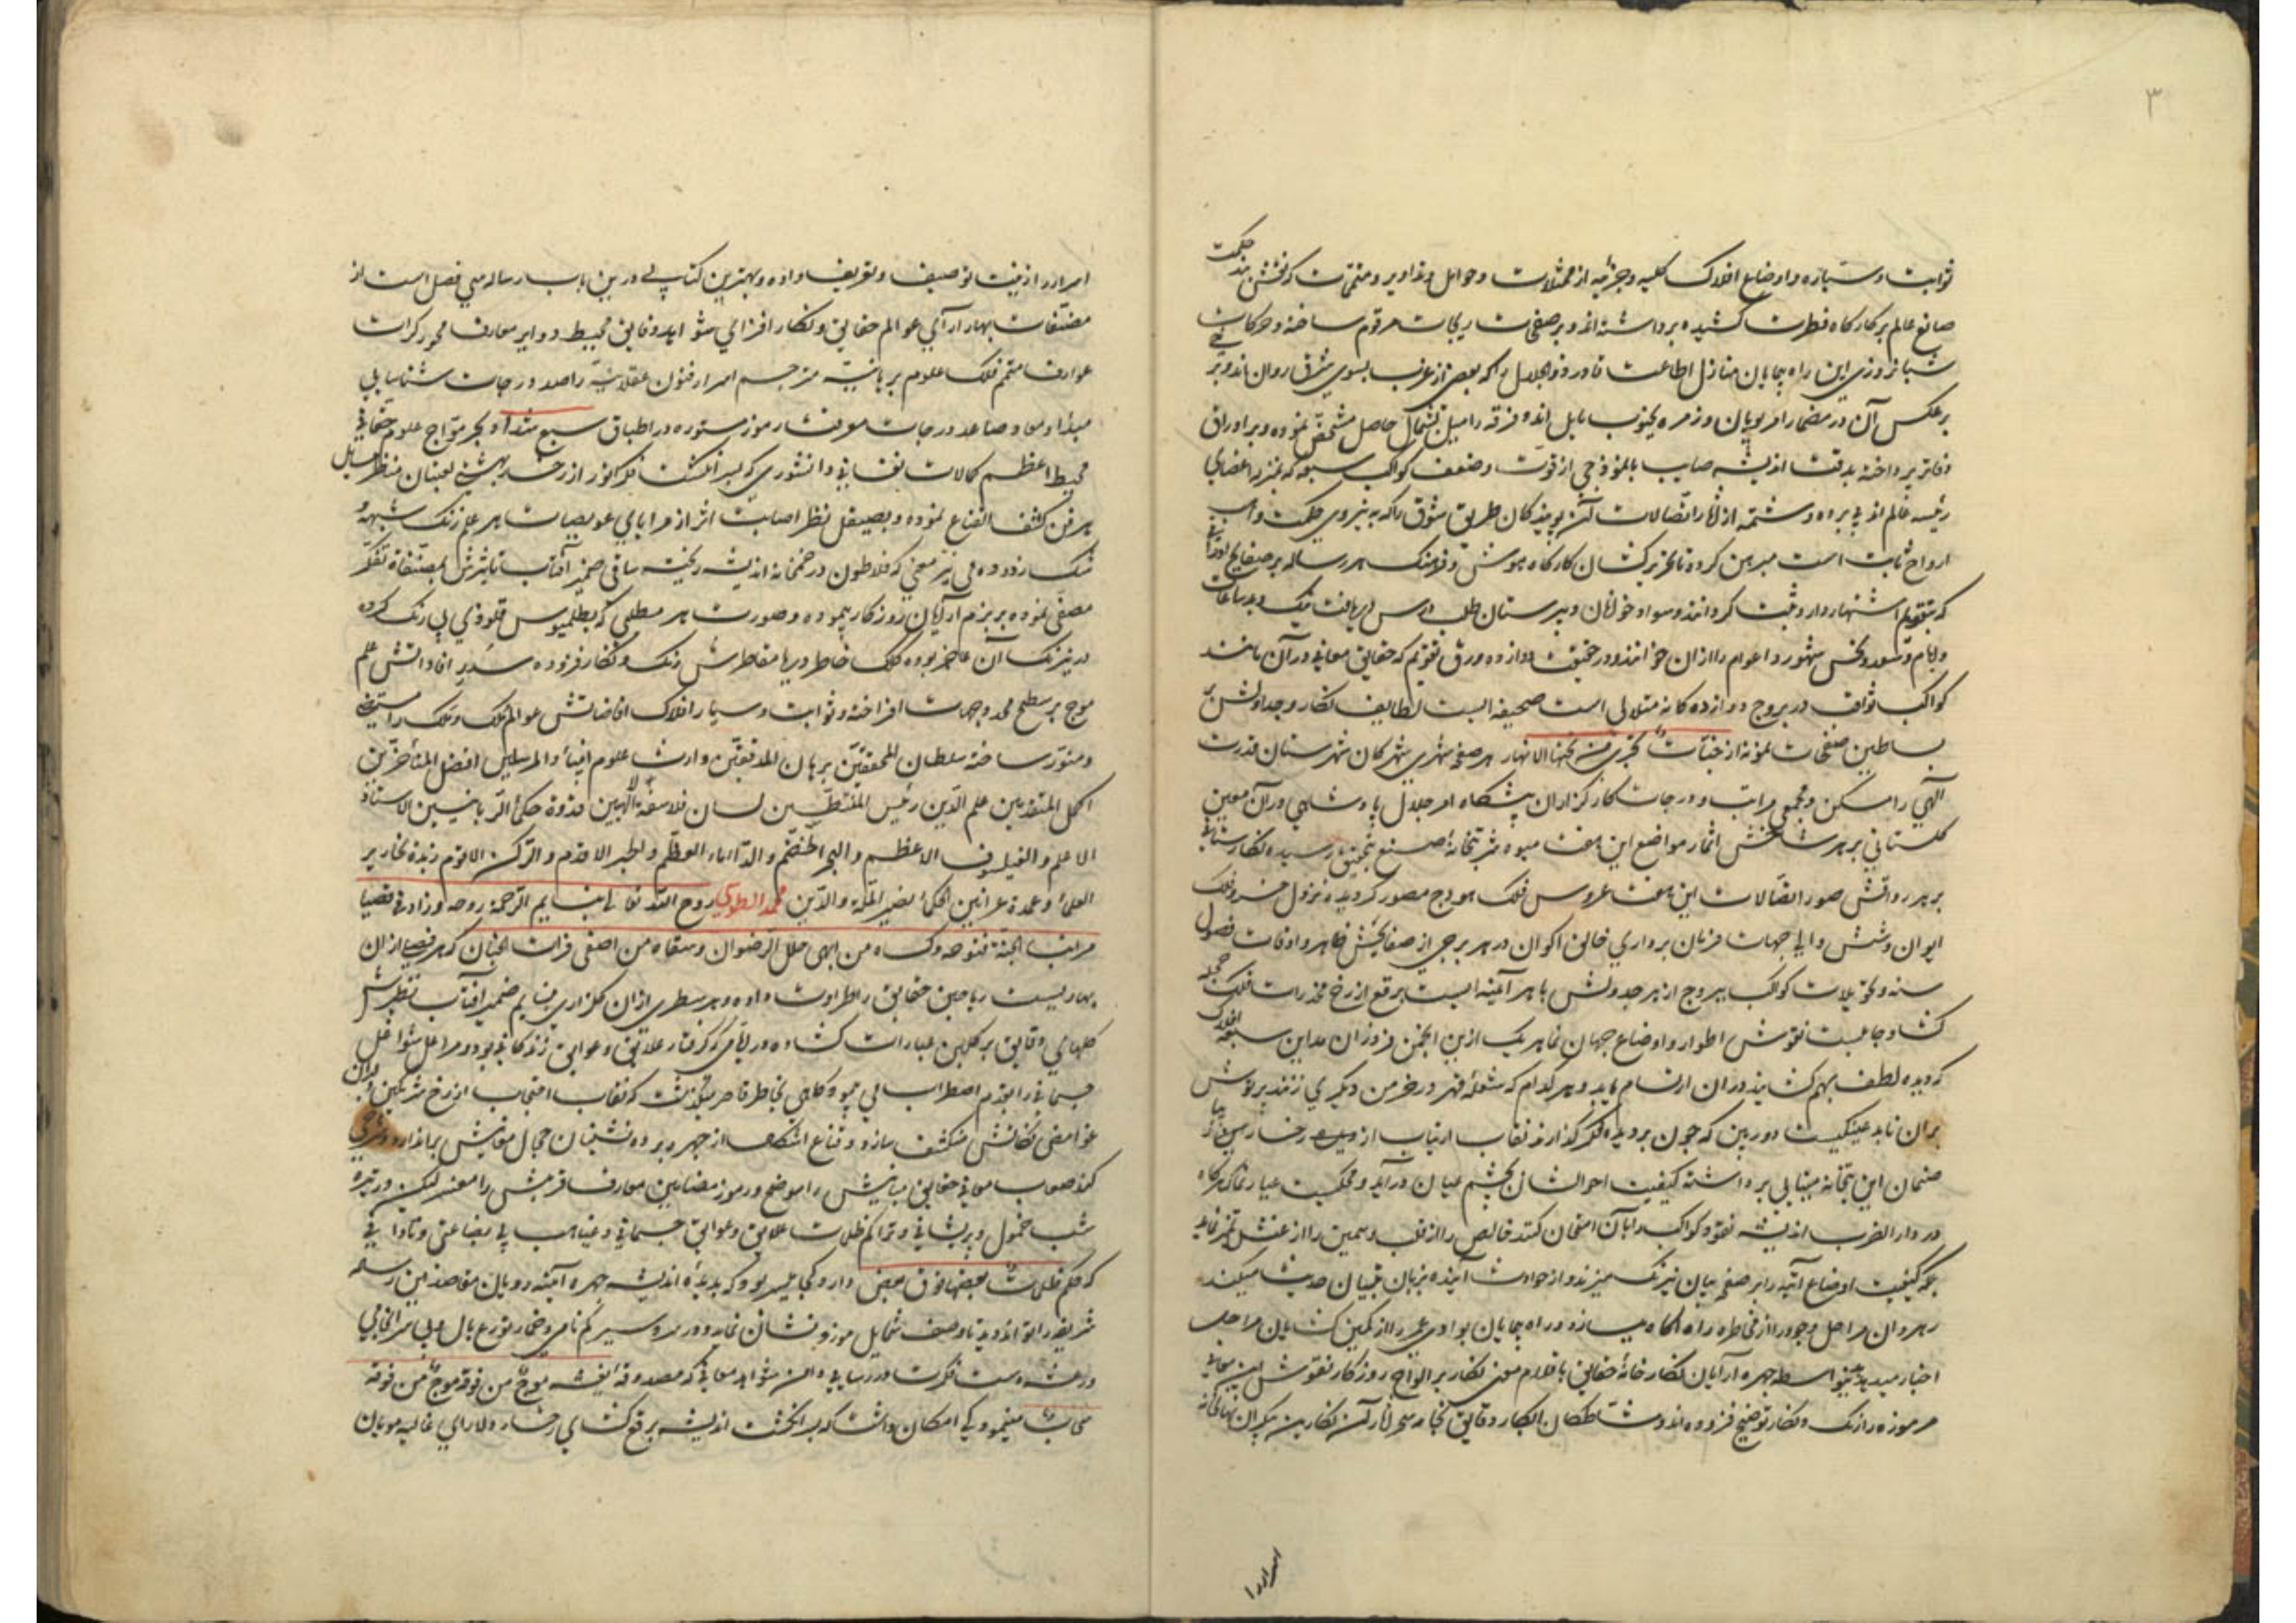 ۳
ثوابت و سیاره و اوضاع افلاک کلیه و جزئیه از ممثلات و حوامل و تداویر و متممات که نقش بند حکمت
صانع عالم بر کارکاه فطرت کشیده برداشته‌اند و بر صفحات مرقوم ساخته و حرکات
شبانروزی این راه پیمایان منازل اطاعت قادر ذوالجلال را که بعضی از غرب بسوی شرق روان‌اند و بر
برعکس آن در مضمار امر پویان و زمره بجنوب مایل‌اند و فرقه را میل بشمال حاصل مشخص نموده و بر اوراق
دفاتر پرداخته بدقت اندیشه صایب بانموذجی از قوت و ضعف کواکب سبعه که بمنزله اعضای
رئیسه عالم‌اند پی برده و شمه از آثار اتصالات آن پویندکان طریق شوق را که به نیروی حکمت واهب
ارواح ثابت است مبرهن کرده تا تحریرکشان کارکاه هوش و فرهنک هر رساله بر صفایح
که بتقویم اشتهار دارد ثبت کردانند و سواد خوانان دبیرستان طلب از دریافت نیک و بد ساعات
و ایام و سعد و نحس شهور و اعوام را از ان خوانند و در حقیقت دوازده ورق تقویم که حقایق معانی در آن مانند
کواکب ثواقب در بروج دوازده کانه متلالی است صحیفه ایست لطایف نکار و جداولش بر
بساطین صفحات نمونه از جنات تجری من تحتها الانهار هر صفحه شهری شهرکان شهرستان قدرت
الهی را مسکن و مجمعی مراتب و درجات کارکزاران پیشکاه امر جلال پادشاهی در آن مبین
کلستانی بر هر شاخش اثمار مواضع این هفت میوه صنع بتحقیق رسیده نکارستانی
بر هر رواقش صور اتصالات این هفت عروس فلک هودج مصور کردیده نزول خسرو فلک
ایوان و شش والی جهات فرمان برداری خالق اکوان در هر برجی از صفایحش ظاهر و اوقات فصول
سنه و تحویلات کواکب ببروج از هر جدولش باهر آئینه ایست برقع از رخ مخدرات فلک
کشا و جامیست نقوش اطوار و اوضاع جهان نما هر یک ازین انجمن فروزان مداین سبعه افلاک
که دیده لطف بهم کشایند در ان ارتسام یابد و هر کدام که شعله قهر در خرمن دیکری زنند پرتوش
بران تابد عینکیست دوربین که چون بر دیده فکر کذارند نقاب ارتیاب از رخسار
صنمان این بتخانه مینایی برداشته کیفیت احوالشان بچشم عیان درآید و محکیست عیار نما که هرکاه
در دار الضرب اندیشه نقود کواکب را بآن امتحان کنند خالص را از قلب و سمین را از غث تمیز نماید
بلکه کیفیت اوضاع آتیه را بر صفحه بیان نیرنک میزند و از حوادث آینده بزبان تبیان حدیث میکند
رهروان مراحل وجود را از مخاطره راه آکاه میسازد و راه پیمایان بوادی عمر را از کمین کشایان مراحل
اخبار میدهد چهره آرایان نکار خانهٔ حقایق باقلام معنی نکار بر الواح روزکار نقوش این معانی
مرموزه را زنک و نکار توضیح فزوده‌اند و مشاطکان ابکار دقایق آن نکارین پیکران نهانخانه
اسرار را
اسرار را زینت توصیف و تعریف داده و بهترین کتابی درین باب رساله سی فصل است از
مصنفات بهار آرای عوالم حقایق و نکار افزای شواهد دقایق محیط دوایر معارف محور کرات
عوارف متمم فلک علوم برهانیه مترجم اسرار فنون عقلانیه راصد درجات شناسایی
مبدا و معاد صاعد درجات معرفت رموز مستوره در اطباق سبع شداد بحر مواج علوم حقانی
محیط اعظم کمالات نفسانی دانشوری که بسر انکشت فکر انور از رخسار بهشتی لعبتان مسایل
هر فن کشف القناع نموده و بصیقل نظر اصابت اثر از مرایای عویصات هر علم زنک شبهه و
شک زدوده می هر معنی که فلاطون در خمخانه اندیشه ریخته ساقی ضمیر آفتاب تاثیرش بمصفاة تفکر
مصفی نموده بر بزم آرایان روزکار پیموده و صورت هر مطلبی که بطلمیوس قلوذی بی رنک کرده
در نیرنک آن عاجز بوده کلک خاطر دریا مقاطرش رنک و نکار فزوده سریر افاداتش علم
موج بر سطح محدد جهات افراخته و ثوابت و سیار افلاک افاضاتش عوالم ملک و ملک را مستضیء
و منور ساخته سلطان المحققین برهان المدققین وارث علوم انبیاء والمرسلین افضل المتأخرین
اکمل المتقدمین علم الدین رئیس لسان فلاسفة الالهیین قدوة حکماء الربانیین الاستاذ
الاعلم والفیلسوف الاعظم والبحر الخضم والداماء الغطم والحبر الاقدم والرکن الاقوم زبدة نحاریر
العلماء و عمدة عرانین الحکماء نصیر الملة والدین محمد الطوسی روح الله تعالی بنسایم الرحمة روحه و زاد فی
مراتب الجنة فتوحه و کساه من ابهی حلل الرضوان و سقاه من اصفی فرات الجنان که هر فصل از ان
بهاریست ریاحین حقایق را طراوت داده و هر سطری از ان کلزاری بنسایم ضمیر آفتاب نظیرش
کلهای دقایق بر کلبن عبارات کشاده در ایامی که کرفتار علایق و عوایق زندکانی بود و مراحل شواغل
جسمانی را بقدم اضطراب می‌پیمود کاهی بخاطر قاصر میکذشت که نقاب احتجاب از رخ
غوامض نکاتش منکشف سازد و قناع اشکال از چهره پرده نشینان حجال معانیش براندازد و شرحی
کند صعاب معانی حقایق مبانیش را موضح و رموز مضامین معارف قرینش را مفسر لیکن در تیره
شب خمول و پریشانی و تراکم ظلمات علایق و عوایق جسمانی و غیاهب بی بضاعتی و ناتوانی
که حکم ظلمات بعضها فوق بعض دارد کجا میسر بود که بدیدهٔ اندیشه چهره آئینه رویان مقاصد این رساله
شریفه را تواند دید تا وصف شمایل موزونشان نماید و در مد و سیر کم نامی و خمار توزع بال و بی سرانجامی
رعشه دست فکرت در رسایی دامن شواهد معانی که مصدوقه یغشیه موج من فوقه موج من فوقه
سحاب مینمود کی امکان داشت که بسر انکشت اندیشه برقع کشای رخسار دلارای غالیه مویان